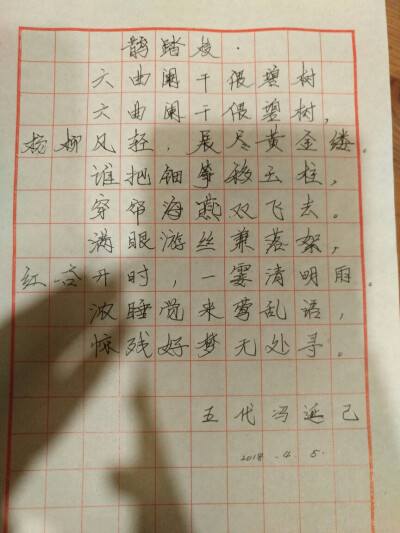 鹊踏枝·
六曲阑干偎碧树
六曲阑干偎碧树，
杨柳风轻，展尽黄金缕。
谁把钿筝移玉柱，
穿帘海燕双飞去。
满眼游丝兼落絮，
红杏开时，一霎清明雨。
浓睡觉来莺乱语，
惊残好梦无处寻。
五代冯延己
2018.4.5.